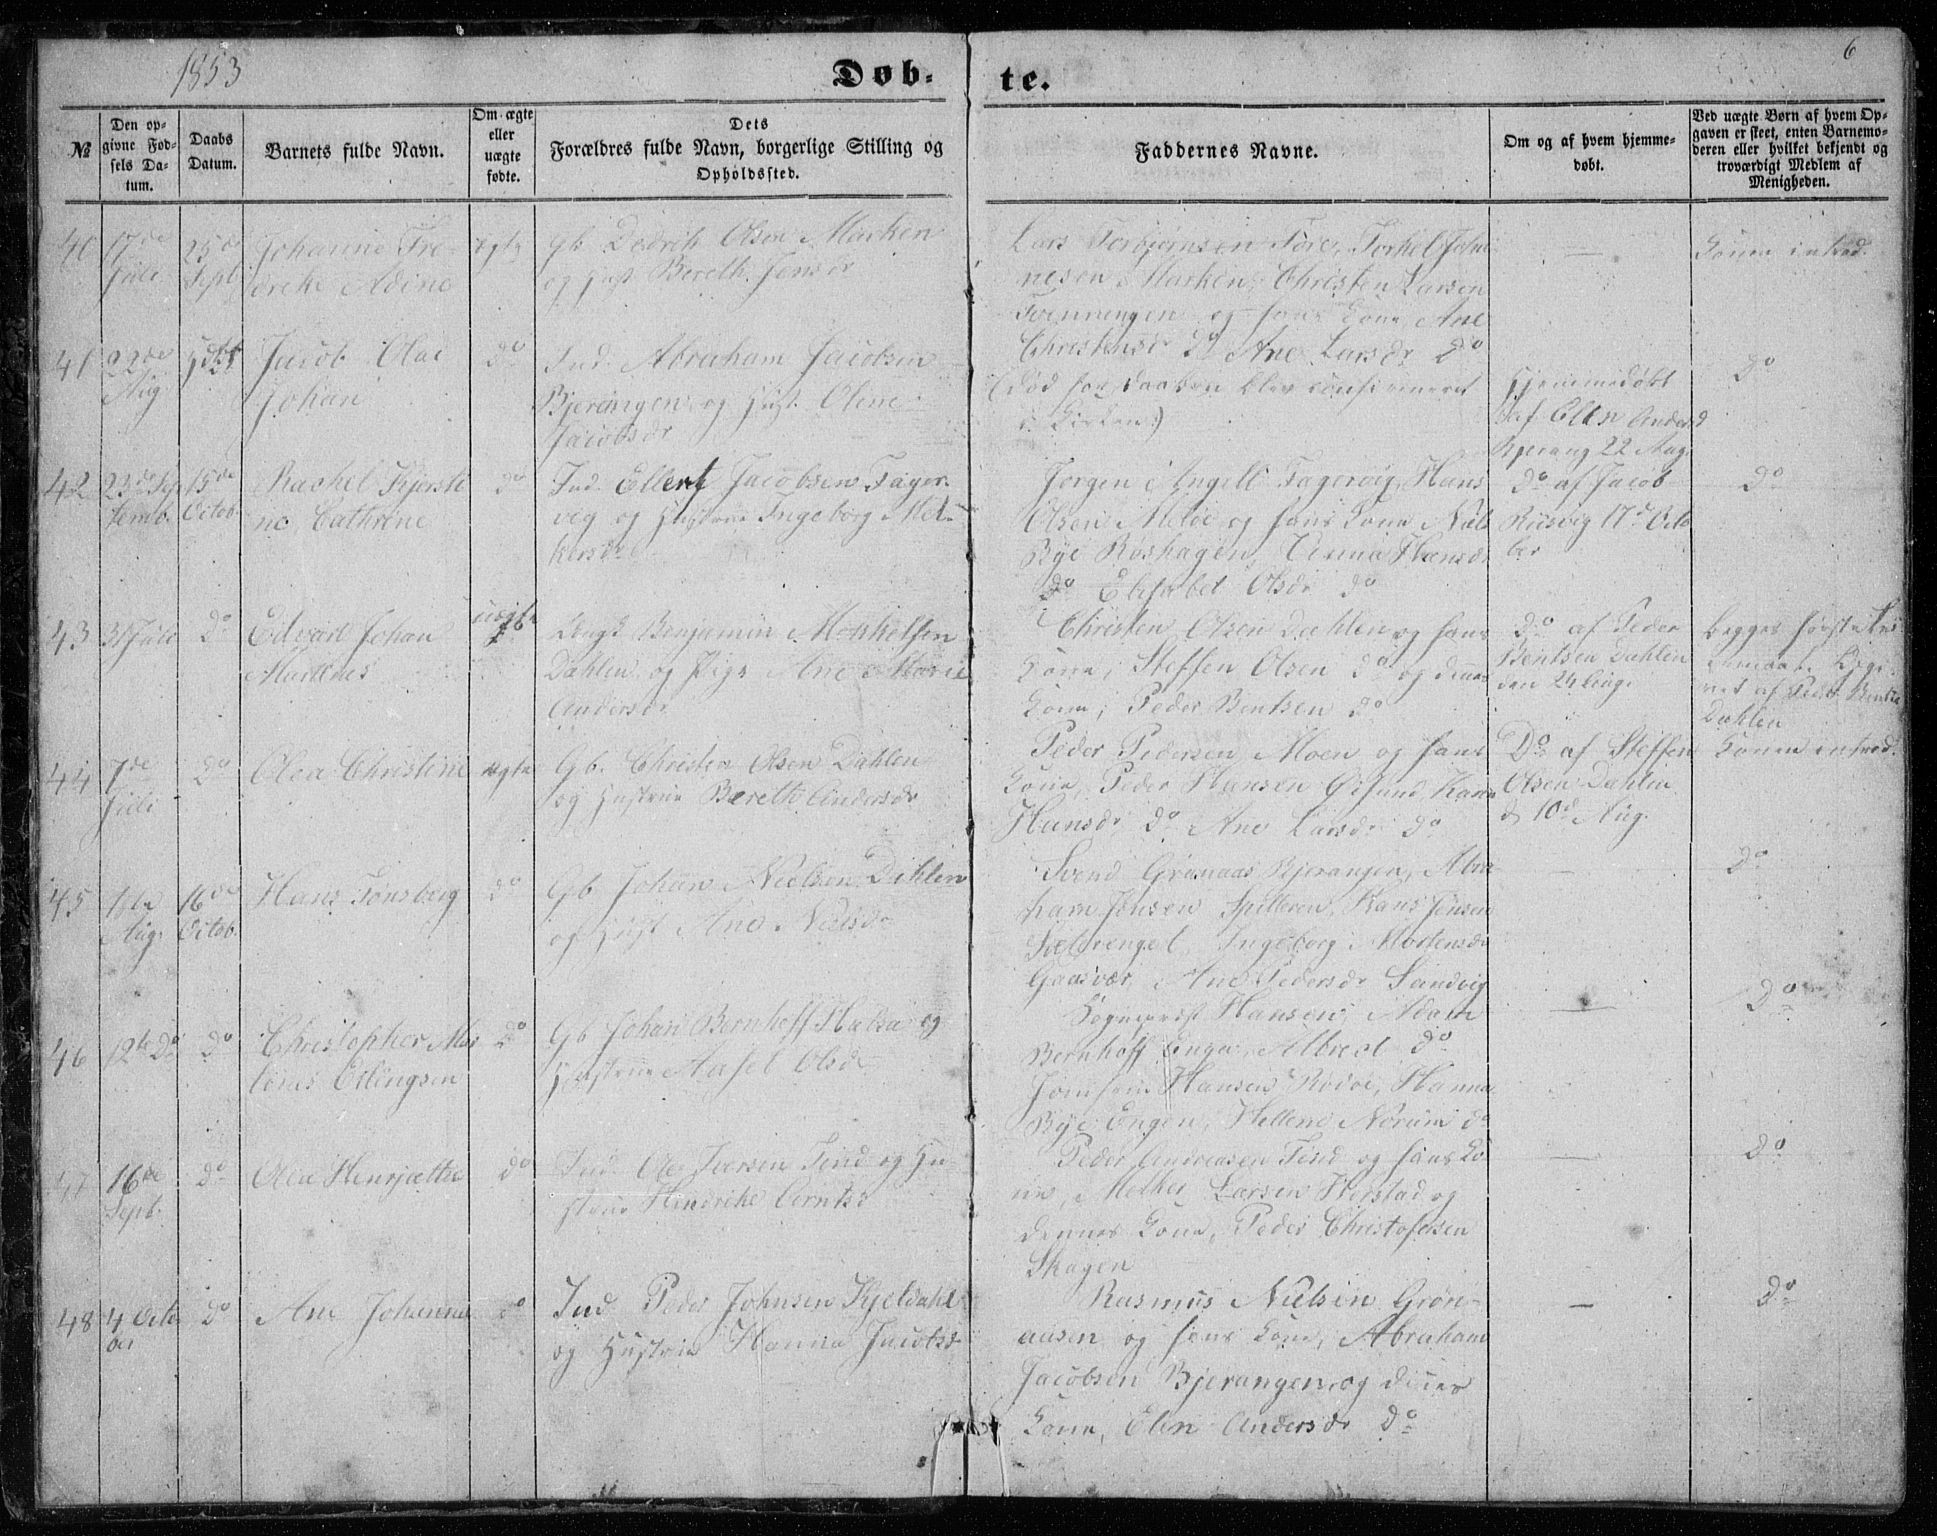 1853
Døb-
te.
6
№
Den op-
givne Fød-
sels Da-
tum.
Daabs
Datum.
Barnets fulde Navn.
Om ægte
eller
uægte
fødte.
Dets
Forældres fulde Navn, borgerlige Stilling og
Opholdssted.
Faddernes Navne.
Om og af hvem hjemme-
døbt.
Ved uægte Børn af hvem Op-
gaven er skeet, enten Barnemo-
deren eller hvilket bekjendt og
troværdigt Medlem af
Menigheden.
40
17de
Juli
25de
Sept
Johanne Fre-
drike Adine
ægte
Gb. Dedrik Olsen Marken
og Hust Bereth Jensdr
Lars Torbjørnsen Tore, Torkel Johan
nesen Marken, Christen Larsen
Tvenningen og hans Kone, Ane
Christensdr do Ane Larsdr do
—
Konen introd.
41
22de
Aug
Jacob Olai
Johan
do
Ind. Abraham Jacobsen
Bjerangen og Hust. Oline
Jacobsdr
(død før Daaben blev confirmeret
i Kirken)
Hjemmedøbt
af Elen Andersd
Bjerang 22 Aug.
do
42
23de Sep
temb.
15de
Octob
Rachel Kjersti
ne Cathrine
do
Ind. Ellert Jacobsen Fager-
vig og Hustrue Ingeborg Mel-
kersdr
Jørgen Angell Fagervig, Hans
Olsen Meløe og hans Kone, Niels
Bye Røshagen, Hansdr
do Elisabet Olsdr do
do af Jacob
Riisvig 17de Octo
ber
do
43
31 Juli
do
Edvard Johan
Martines
uægte
Ungk Benjamin Mikkelsen
Dahlen og Pige Ane Marie
Andersdr
Christen Olsen Dahlen og hans
Kone, Steffen Olsen do og dennes
Kone, Peder Bentsen do
do af Peder
Bentsen Dahlen
den 24 Aug.
begges første Lei
ermaal. Opgi
vet af Peder Bentsen
Dahlen
44
7de
Juli
do
Olea Christine
ægte
Gb. Christen Olsen Dahlen
og Hustrue Bereth Andersdr
Peder Pedersen Moen og hans
Kone, Peder Hansen Ørsund, Karen
Hansdr do Ane Larsdr do
Do af Steffen
Olsen Dahlen
d 10de Aug.
Konen introd.
45
Aug.
16de
Octob.
Hans Tønsberg
do
Gb Johan Nielsen Dahlen
og Hust Ane Nielsdr
Svend Grønaas Bjerangen, Abra
ham Jensen Spilderen, Hans Jensen
Selvenget, Ingeborg Mortensdr
Gaasvær, Ane Pedersdr Sandvig
—
do
46
12te Do
do
Christopher Mar
tenis Ellingsen
do
Gb Johan Bernhoff Halsa og
Hustrue Aasel Olsdr
Sogneprest Hansen, Adam
Bernhoff Enga, Albred do
Jomfrue Hansen Rødøe, Hanna
Bye Engen, Hellene Norum do
—
do
47
16de
Sept.
do
Olea Henrjætte
do
Ind. Ole Iversen Tind og Hu-
strue Hendrike Berntsd
Peder Andreasen Tind og hans Ko-
ne, Melker Larsen Horstad og
dennes Kone, Peder Christofersen
Skagen
—
do
48
4 Octo
ber
do
Ane Johanna
do
Ind Peder Johnsen Kjeldahl
og Hustrue Hanna Jacobsd
Rasmus Nielsen Grøn-
aasen og hans Kone, Abraham
Jacobsen Bjerangen og dennes
Kone, Elen Andersdr do
—
do